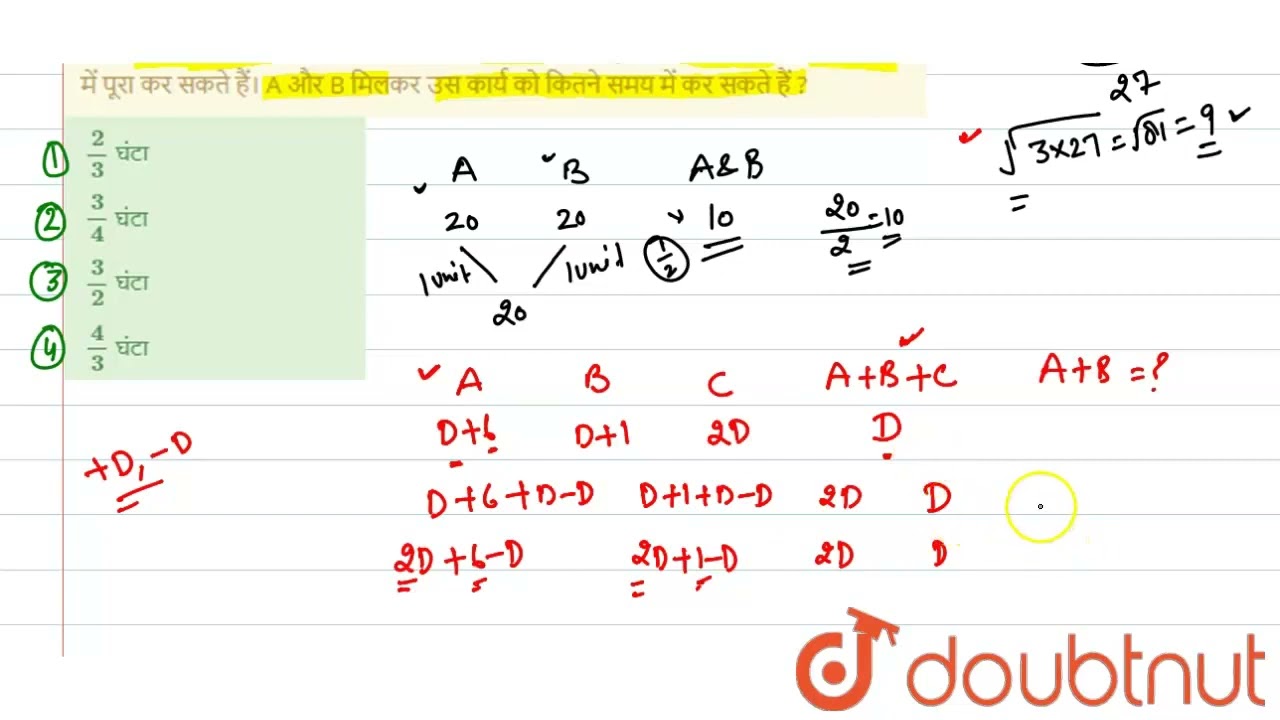 में पूरा कर सकते हैं। A और B मिलकर उस कार्य को कितने समय में कर सकते हैं ?
27
√3×27 = √81 = 9
=
1 2/3 घंटा
2 3/4 घंटा
3 3/2 घंटा
4 4/3 घंटा
A B A&B
20 20 10 20/2 = 10
1unit 1unit 1/2
20
A B C A+B+C A+B = ?
D+6 D+1 2D D
+D, -D
D+6+D-D D+1+D-D 2D D
2D+6-D 2D+1-D 2D D
doubtnut